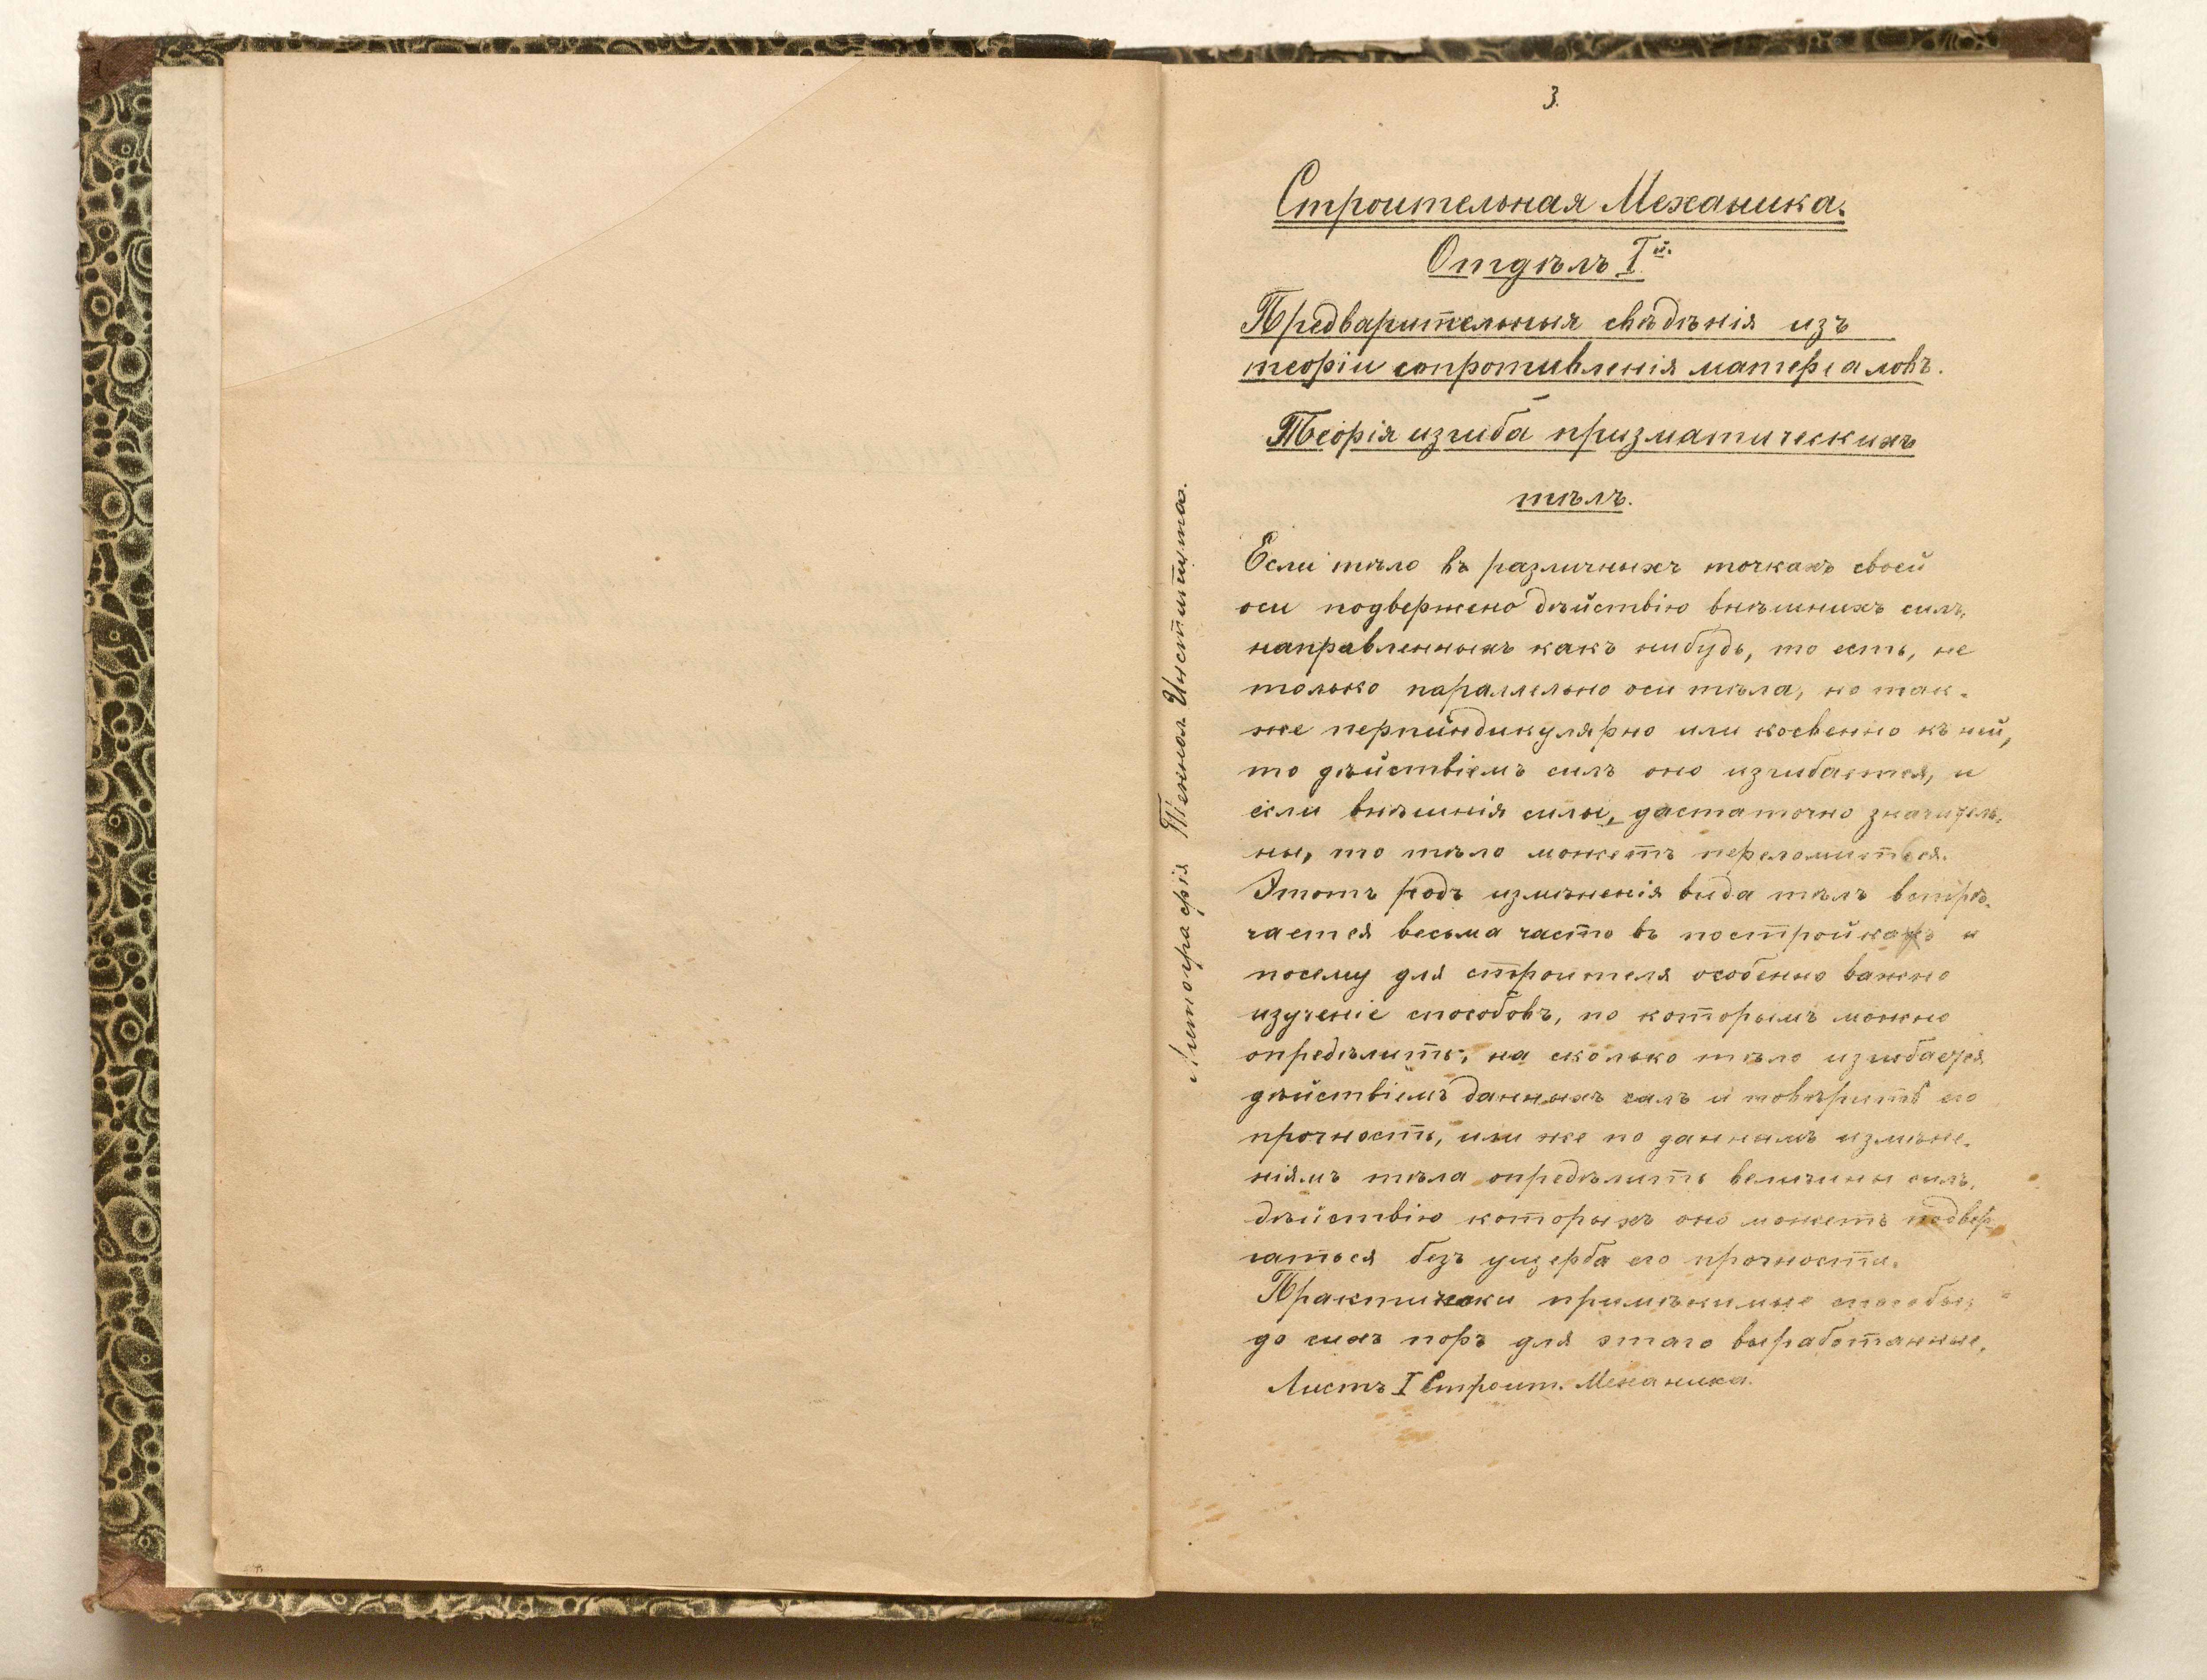 3.
Строительная Механика.
Отдѣлъ Iй.
Предварительныя свѣдѣнія изъ
теоріи сопротивленія матеріаловъ.
Теорія изгиба призматическихъ
тѣлъ.
Если тѣло въ различныхъ точкахъ своей
оси подвержено дѣйствію внѣшнихъ силъ,
направленныхъ какъ нибудь, то есть, не
только параллельно оси тѣла, но так-
же перпендикулярно или косвенно къ ней,
то дѣйствіемъ силъ оно изгибается, и
если внѣшнія силы, достаточно значитель-
ны, то тѣло можетъ переломиться.
Этотъ родъ измѣненія вида тѣлъ встрѣ-
чается весьма часто въ постройкахъ и
посему для строителя особенно важно
изученіе способовъ, по которымъ можно
опредѣлить, на сколько тѣло изгибается
дѣйствіемъ данныхъ силъ и повѣрить его
прочность, или же по даннымъ измѣне-
ніямъ тѣла опредѣлить величины силъ,
дѣйствію которыхъ оно можетъ подвер-
гаться безъ ущерба его прочности.
Практически примѣнимые способы,
до сихъ поръ для этаго выработанные,
Листъ I Строит. Механика.
Литографія Технол Института.